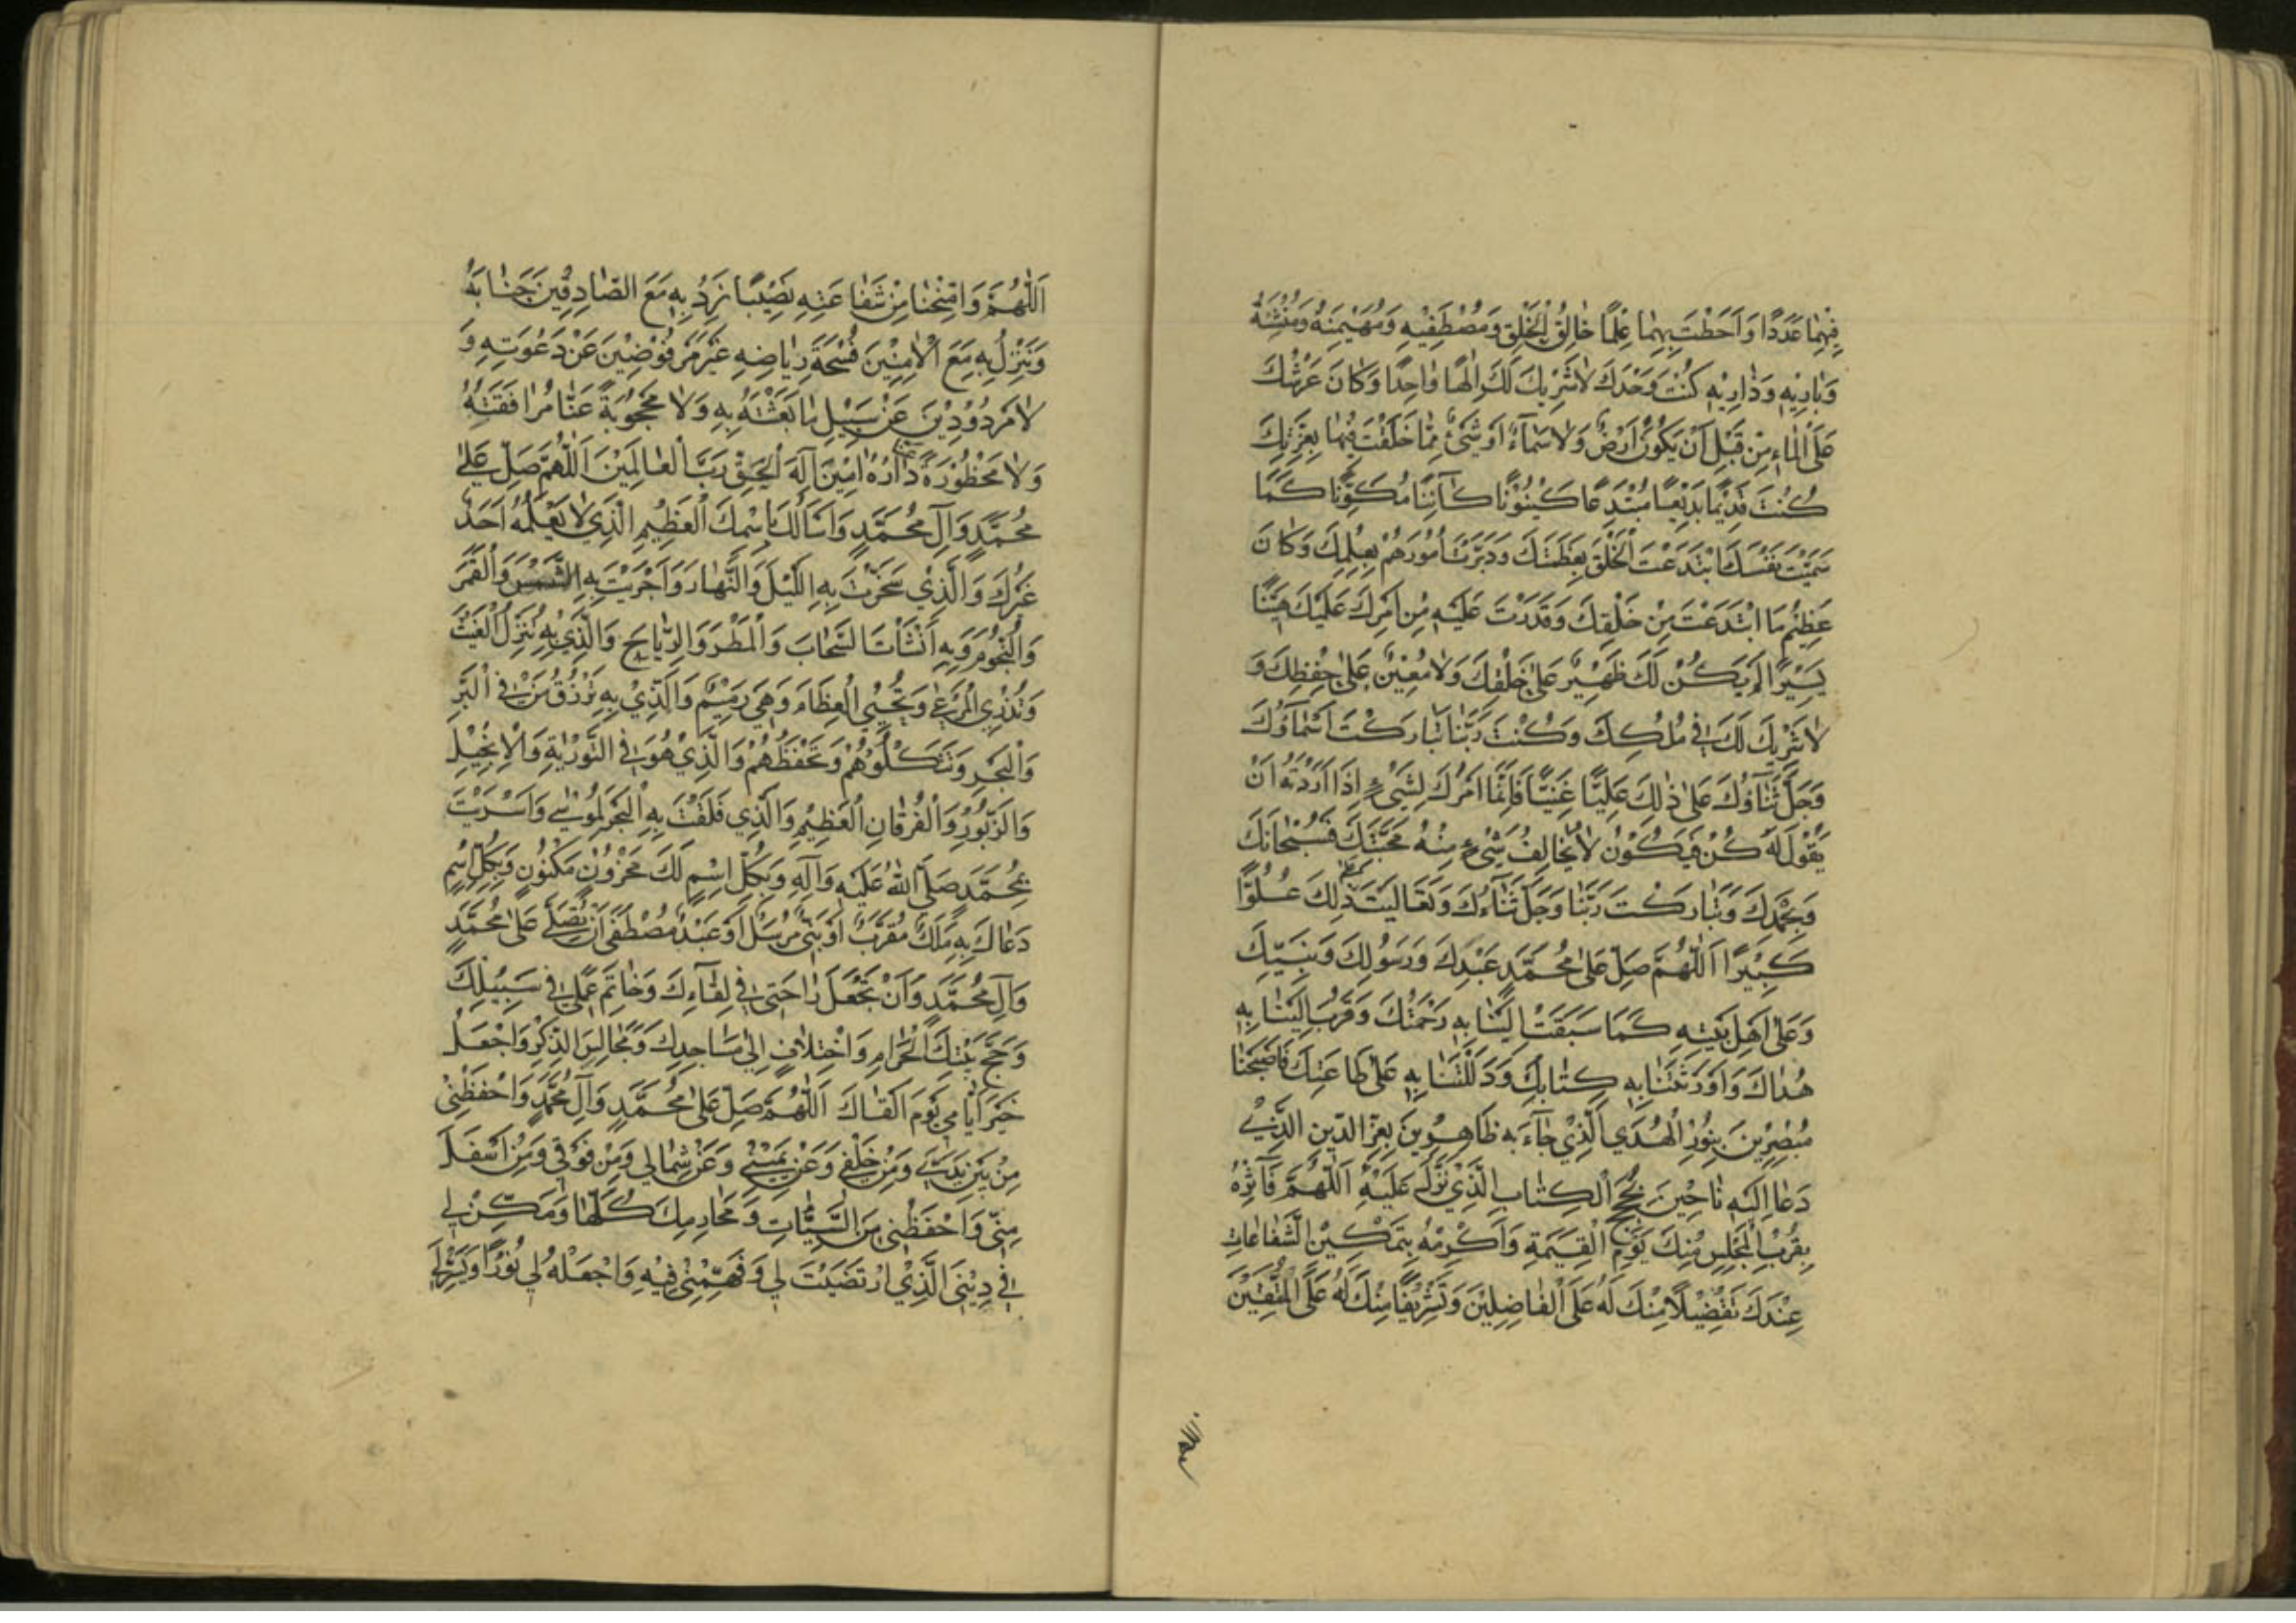 فِيهِمَا عَدَدًا وَاَحَطْتَ بِهِمَا عِلْمًا خَالِقُ الْخَلْقِ وَمُصْطَفِيهِ وَمُهَيْمِنُهُ وَمُنْشِئُهُ
وَبَارِيْهِ وَذَارِيْهِ كُنْتَ وَحْدَكَ لَا شَرِيكَ لَكَ اِلٰهًا وَاحِدًا وَكَانَ عَرْشُكَ
عَلَى الْمَاءِ مِنْ قَبْلِ اَنْ يَكُونَ اَرْضٌ وَلَا سَمَاءٌ اَوْ شَيْءٌ مِمَّا خَلَقْتَ فِيهِمَا بِعِزَّتِكَ
كُنْتَ قَدِيْمًا بَدِيْعًا مُبْتَدِعًا كَيْنُوْنًا كَآئِنًا مُكَوِّنًا كَمَا
سَمَّيْتَ نَفْسَكَ ابْتَدَعْتَ الْخَلْقَ بِعَظَمَتِكَ وَدَبَّرْتَ اُمُوْرَهُمْ بِعِلْمِكَ وَكَانَ
عَظِيْمُ مَا ابْتَدَعْتَ مِنْ خَلْقِكَ وَقَدَّرْتَ عَلَيْهِ مِنْ اَمْرِكَ عَلَيْكَ هَيِّنًا
يَسِيْرًا لَمْ يَكُنْ لَكَ ظَهِيْرٌ عَلٰى خَلْقِكَ وَلَا مُعِيْنٌ عَلٰى حِفْظِكَ وَ
لَا شَرِيْكَ لَكَ فِي مُلْكِكَ وَكُنْتَ رَبَّنَا تَبَارَكَتْ اَسْمَآؤُكَ
وَجَلَّ ثَنَاؤُكَ عَلٰى ذٰلِكَ عَلِيًّا غَنِيًّا فَاِنَّمَا اَمْرُكَ لِشَيْءٍ اِذَا اَرَدْتَهُ اَنْ
يَقُوْلَ لَهُ كُنْ فَيَكُوْنُ لَا يُخَالِفُ شَيْءٌ مِنْهُ مَحَبَّتَكَ فَسُبْحَانَكَ
وَبِحَمْدِكَ وَتَبَارَكْتَ رَبَّنَا وَجَلَّ ثَنَاءُكَ وَتَعَالَيْتَ ذٰلِكَ عُلُوًّا
كَبِيْرًا اَللّٰهُمَّ صَلِّ عَلٰى مُحَمَّدٍ عَبْدِكَ وَرَسُوْلِكَ وَنَبِيِّكَ
وَعَلٰى اَهْلِ بَيْتِهِ كَمَا سَبَقَتْ اِلَيْنَا بِهِ رَحْمَتُكَ وَقَرُبَ اِلَيْنَا بِهِ
هُدَاكَ وَاَوْرَثْتَنَا بِهِ كِتَابَكَ وَدَلَلْتَنَا بِهِ عَلٰى طَاعَتِكَ فَاَصْبَحْنَا
مُبْصِرِيْنَ بِنُوْرِ الْهُدَى الَّذِيْ جَآءَ بِهِ ظَاهِرِيْنَ بِعِزِّ الدِّيْنِ الَّذِيْ
دَعَا اِلَيْهِ نَاجِيْنَ بِحُجَجِ الْكِتَابِ الَّذِيْ نَزَلَ عَلَيْهِ اَللّٰهُمَّ فَآثِرْهُ
بِقُرْبِ الْمَجْلِسِ مِنْكَ يَوْمَ الْقِيٰمَةِ وَاَكْرِمْهُ بِتَمْكِيْنِ الشَّفَاعَاتِ
عِنْدَكَ تَفْضِيْلًا مِنْكَ لَهُ عَلَى الْفَاضِلِيْنَ وَتَشْرِيْفًا مِنْكَ لَهُ عَلَى الْمُتَّقِيْنَ
اَللّٰهُمَّ وَامْنَحْنَا مِنْ شَفَاعَتِهِ نَصِيْبًا نَرِدُ بِهِ مَعَ الصَّادِقِيْنَ جَنَابَهُ
وَنَنْزِلُ بِهِ مَعَ الْاٰمِنِيْنَ فُسْحَةَ رِيَاضِهِ غَيْرَ مَرْفُوْضِيْنَ عَنْ دَعْوَتِهِ وَ
لَا مَرْدُوْدِيْنَ عَنْ سَبِيْلِ مَا بَعَثْتَهُ بِهِ وَلَا مَحْجُوْبَةً عَنَّا مُرَافَقَتُهُ
وَلَا مَحْظُوْرَةً دَارُهُ اٰمِيْنَ اِلٰهَ الْحَقِّ رَبَّ الْعَالَمِيْنَ اَللّٰهُمَّ صَلِّ عَلٰى
مُحَمَّدٍ وَآلِ مُحَمَّدٍ وَاَسْاَلُكَ بِاسْمِكَ الْعَظِيْمِ الَّذِي لَا يَعْلَمُهُ اَحَدٌ
غَيْرُكَ وَالَّذِيْ سَخَّرْتَ بِهِ اللَّيْلَ وَالنَّهَارَ وَاَجْرَيْتَ بِهِ الشَّمْسَ وَالْقَمَرَ
وَالنُّجُوْمَ وَبِهِ اَنْشَاْتَ السَّحَابَ وَالْمَطَرَ وَالرِّيَاحَ وَالَّذِيْ بِهِ تُنَزِّلُ الْغَيْثَ
وَتُذْرِي الْمَرْعٰى وَتُحْيِي الْعِظَامَ وَهِيَ رَمِيْمٌ وَالَّذِيْ بِهِ تَرْزُقُ مَنْ فِي الْبَرِّ
وَالْبَحْرِ وَتَكْلَؤُهُمْ وَتَحْفَظُهُمْ وَالَّذِيْ هُوَ فِي التَّوْرٰيةِ وَالْاِنْجِيْلِ
وَالزَّبُوْرِ وَالْفُرْقَانِ الْعَظِيْمِ وَالَّذِي فَلَقْتَ بِهِ الْبَحْرَ لِمُوْسٰى وَاَسْرَيْتَ
بِمُحَمَّدٍ صَلَّى اللهُ عَلَيْهِ وَآلِهِ وَبِكُلِّ اسْمٍ لَكَ مَخْزُوْنٍ مَكْنُوْنٍ وَبِكُلِّ اسْمٍ
دَعَاكَ بِهِ مَلَكٌ مُقَرَّبٌ اَوْ نَبِيٌّ مُرْسَلٌ اَوْ عَبْدٌ مُصْطَفًى اَنْ تُصَلِّيَ عَلٰى مُحَمَّدٍ
وَآلِ مُحَمَّدٍ وَاَنْ تَجْعَلَ رَاحَتِي فِي لِقَآءِكَ وَخَاتَمَ عَمَلِي فِي سَبِيْلِكَ
وَحَجَّ بَيْتِكَ الْحَرَامِ وَاخْتِلَافٍ اِلٰى مَسَاجِدِكَ وَمَجَالِسِ الذِّكْرِ وَاجْعَلْ
خَيْرَ اَيَّامِي يَوْمَ اَلْقَاكَ اَللّٰهُمَّ صَلِّ عَلٰى مُحَمَّدٍ وَآلِ مُحَمَّدٍ وَاحْفَظْنِيْ
مِنْ بَيْنِ يَدَيَّ وَمِنْ خَلْفِي وَعَنْ يَمِيْنِيْ وَعَنْ شِمَالِي وَمِنْ فَوْقِي وَمِنْ اَسْفَلَ
مِنِّي وَاحْفَظْنِي مِنَ السَّيِّئَاتِ وَمَحَارِمِكَ كُلِّهَا وَمَكِّنْ لِي
فِي دِيْنِيَ الَّذِيْ ارْتَضَيْتَ لِي وَفَهِّمْنِيْ فِيْهِ وَاجْعَلْهُ لِي نُوْرًا وَيَسِّرْ لِيَ